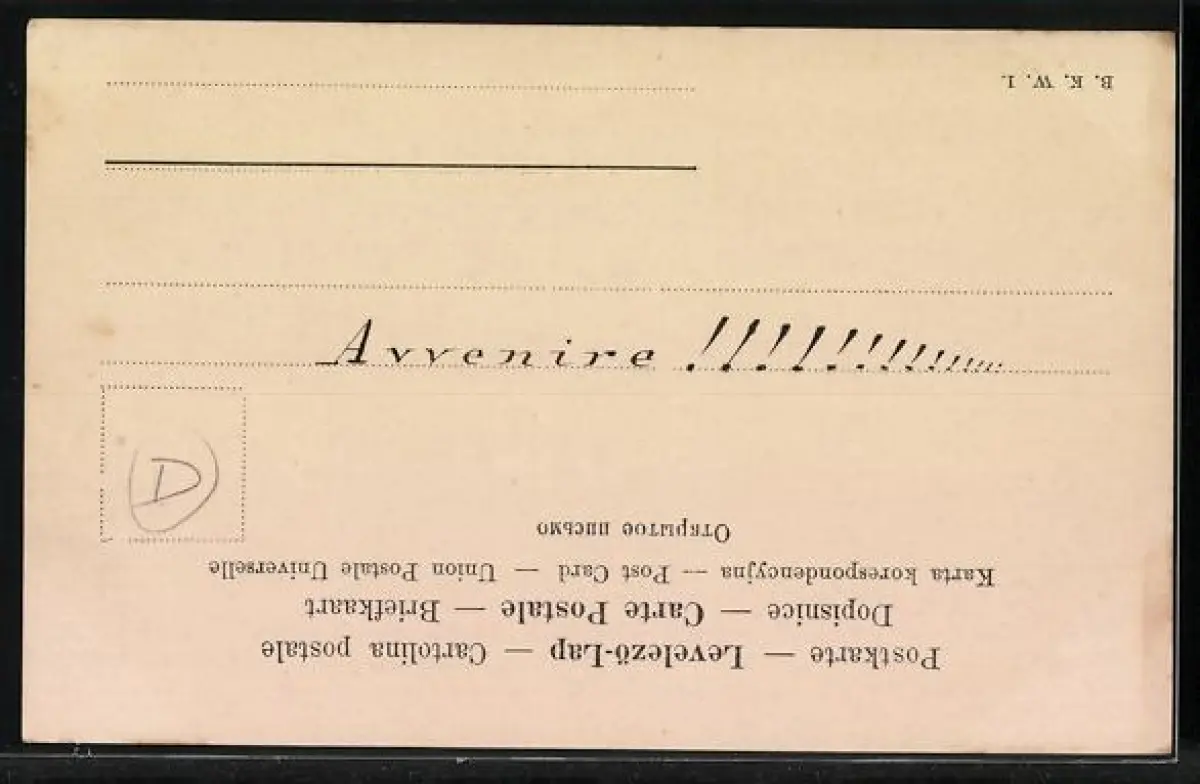 Postkarte — Levelező-Lap — Cartolina postale
Dopisnice — Carte Postale — Briefkaart
Karta korespondencyjna — Post Card — Union Postale Universelle
Открытое письмо
D
Avvenire !!!!!!!!!!!!!!!!
B. K. W. I.